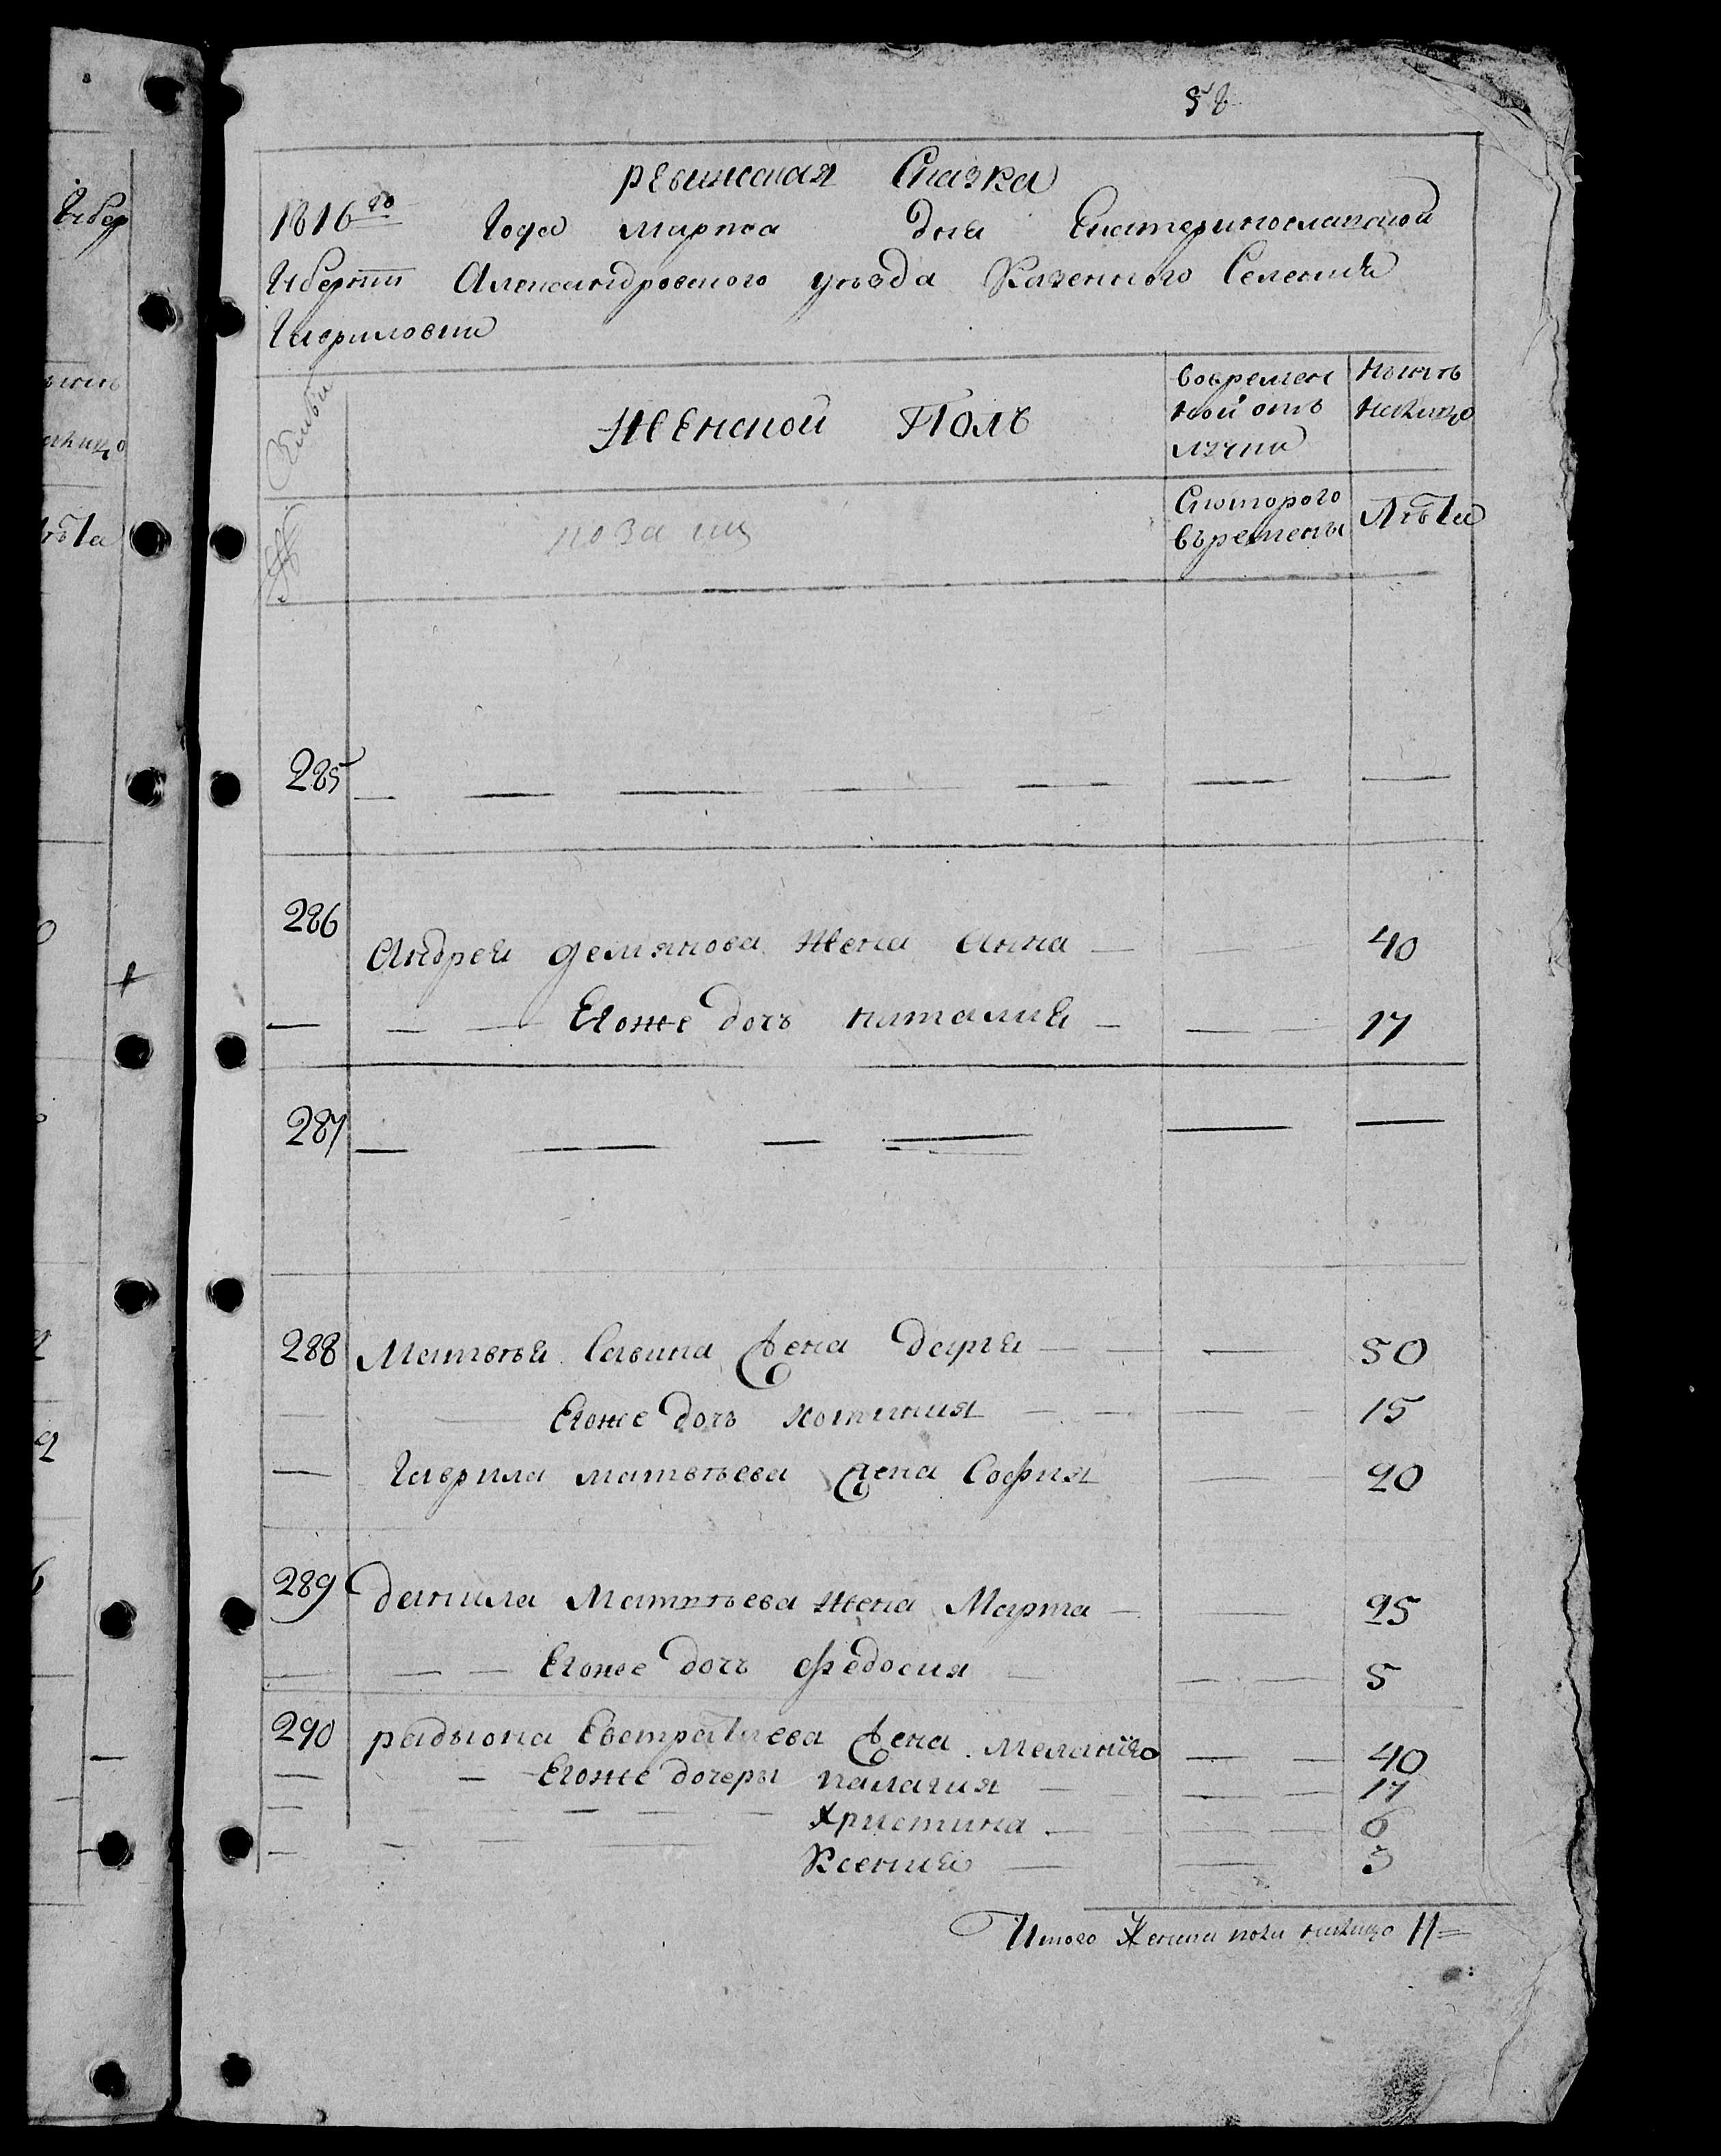 58
ревижская Сказка
1816го Года марта дня Екатеринославской
Губернїи Александровского уезда Казенного Селения
Гавриловки
Семьи
Женской Полъ
вовремен
ной отъ
лучки
нынѣ
налицо
№
Скоторого
въремены
Лѣта
285
286
Андрея демянова жена Анна 40
Егоже дочь наталия 17
287
288 Матвѣя Савина Жена Дарья 50
Егоже дочь хотиния 15
Гаврила матвѣева Жена София 20
289 Данила Матвѣева жена Марта 25
Егоже дочь федосия 5
290 радиона Евстратиева Жена Меланїю 40
Егоже дочеры палагия 17
Христина 6
Ксения 3
Итого Женска пола налицо 11
Губер
налицо
лѣта